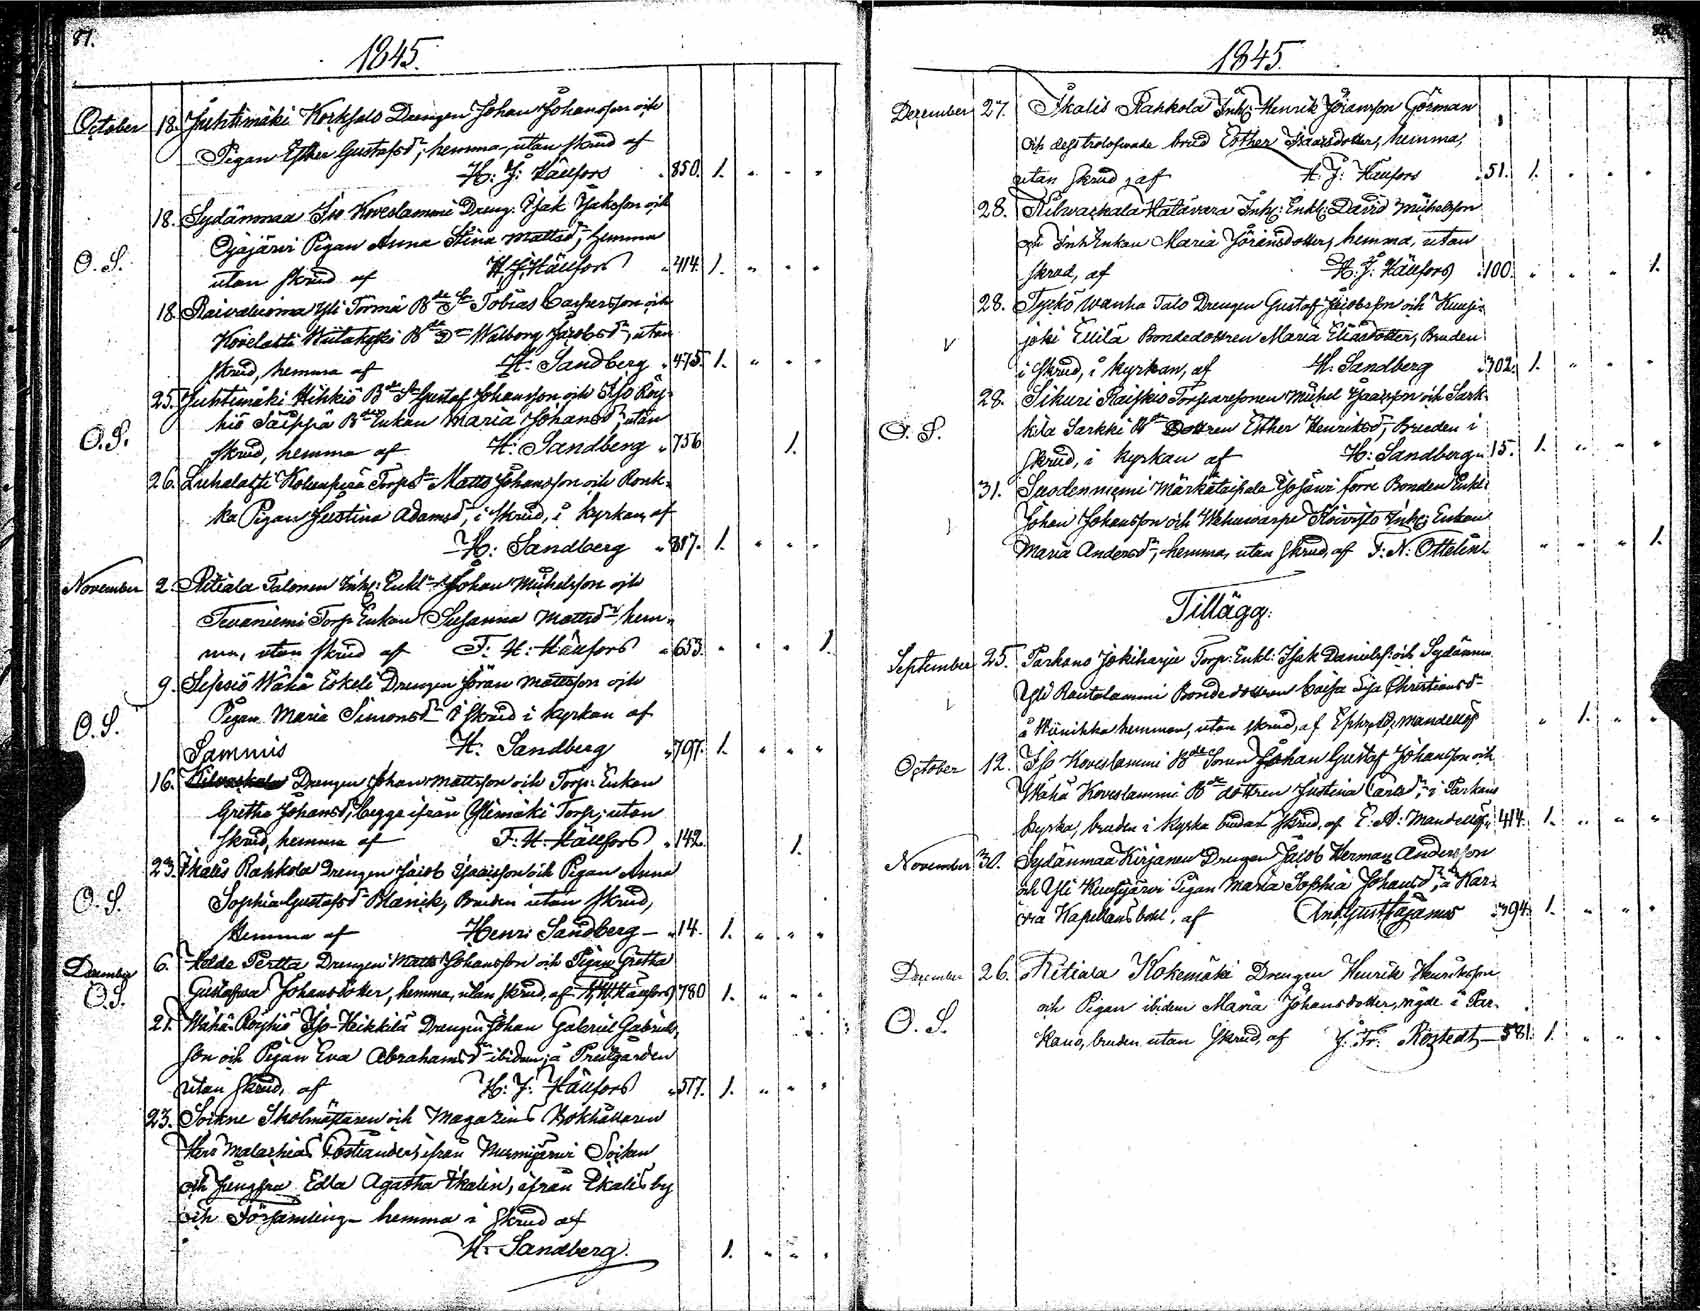 81.
1845.
October 18. Juhtimäki Korkjalo Drengen Johan Johansson och
Pigan Esther Gustafsdr, hemma, utan skrud af
H: J: Hällfors 850. 1.
18. Sydänmaa Iso Koveslammi Dreng: Isak Isaksson och
Ojajärvi Pigan Anna Stina Mattsdr, hemma
O. S. utan skrud af H. J. Hällfors 414. 1.
18. Raivaluoma Yli Törmä Bde Sn Tobias Caspersson och
Kovelahti Bde Dr Walborg Jacobsdr, utan
skrud, hemma af H. Sandberg 475. 1.
25. Juhtimäki Hihkiö Bde Sn Gustaf Johansson och Iso Röy-
hiö Saippa Bde Enkan Maria Johansdr, utan
O. S. skrud, hemma af H: Sandberg 756 1.
26. Luhalahti Torpn Matts Johansson och Ronk-
ka Pigan Justina Adamsdr, i skrud, i kyrkan, af
H: Sandberg 817. 1.
November 2. Ritiala Talonen Inh: Enkln Johan Michelsson och
Tevaniemi Torp Enkan Susanna Mattsdr hem-
ma, utan skrud af F: H: Hällfors 653. 1.
9. Sipsiö Wähä Eskeli Drengen Jöran Mattsson och
Pigan Maria Simonsdr i skrud i kyrkan af
O. S. H. Sandberg 797. 1.
Sammis
16. Drengen Johan Mattsson och Torp: Enkan
Gretha Johansdr, begge ifrån Ylimäki Torp, utan
skrud, hemma af F: H: Hällfors 142. 1.
23. Ikalis Rahkola Drengen Jacob Isaacsson och Pigan Anna
O. S. Sophia Gustafsdr Blanik, Bruden utan skrud,
hemma af Henri Sandberg 14. 1.
December 6. Heldé Pertta Drengen Matts Johansson och Pigan Gretha
O. S. Gustafva Johansdotter, hemma, utan skrud, af Hällfors 780 1.
21. Wähä-Röyhiö Iso-Heikkilä Drengen Johan Gabriel Gabriels-
son och Pigan Eva Abrahamsdr ibidem, å Prestgården
utan skrud, af H: J: Hällfors 517. 1.
23. Sockne Skolmästaren och Magazins Bokhållaren
Herr Malachias Costiander, ifrån Nurmijärvi Socken
och Jungfru Edla Agatha Ikalin, ifrån Ikalis by
och Församling hemma i skrud af
H. Sandberg. 1.
1845.
December 27. Ikalis Rahkola Inh: Henrik Jöransson Görman
och dess trolofvade brud Esther Isaacsdotter, hemma,
utan skrud, af H. J: Hällfors 51. 1.
28. Kilwackala Hatavara Inh: Enkl: David Michelsson
och Inh: Enkan Maria Jöransdotter, hemma, utan
skrud, af H: J: Hällfors 100. 1.
28. Tyrkö Wanha Talo Drengen Gustaf Jacobsson och Kuusi-
joki Ellilä Bondedottren Maria Eliasdotter, Bruden
i skrud, i kyrkan, af H. Sandberg 302. 1.
28. Sikuri Raiskio Torparesonen Michel Isaacsson och Sark-
O. S. kila Sarkki Bde Dottren Esther Henriksdr, Bruden i
skrud, i kyrkan af H: Sandberg 15. 1.
31. Suodenniemi Märkätaipale Isosuvi förre Bonden Enkl:
Johan Johansson och Wahuwarpe Koivisto Inh: Enkan
Maria Andersdr, hemma, utan skrud, af F: N: Ottelin. 1.
Tillägg:
September 25. Parkano Jokiharju Torp: Enkl: Isak Danielss: och Sydänm.
Yli Rautalammi Bondedottren Caisa Lisa Christiansdr
å Wiinikka hemman, utan skrud, af Ephr. A: Mandellöf 1.
October 12. Iso Koveslammi Bde Sonen Johan Gustaf Johansson och
Wähä Koveslammi Bde dottren Justina Carlsdr, i Parkano
kyrka, bruden i kyrko brudar skrud, af E: A: Mandellöf 414. 1.
November 30. Sydänmaa Kirjanen Drengen Jacob Herman Andersson
och Yli Kuusijärvi Pigan Maria Sophia Johansdr, å Kar-
via Kapellansbohl, af And: Gust: Cajanus 394. 1.
December 26. Ritiala Kokemäki Drengen Henrik Henriksson
och Pigan ibidem Maria Johansdotter, vigde i Par-
O. S. kano, bruden utan skrud, af J. Fr: Rostedt 581. 1.